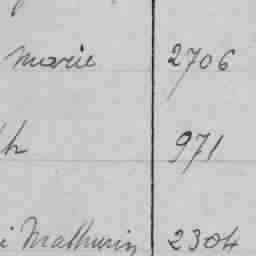 Marie 2706
971
Mathurin 2304